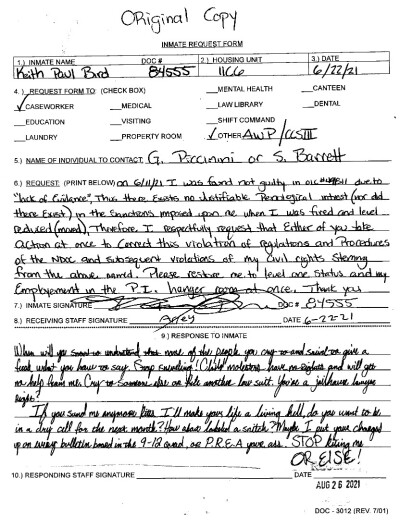 ORiginal Copy
INMATE REQUEST FORM
1.) INMATE NAME DOC # 2.) HOUSING UNIT 3.) DATE
Keith Paul Bird 84555 11C6 6/22/21
4.) REQUEST FORM TO: (CHECK BOX) MENTAL HEALTH CANTEEN
✓ CASEWORKER MEDICAL LAW LIBRARY DENTAL
EDUCATION VISITING SHIFT COMMAND
LAUNDRY PROPERTY ROOM ✓ OTHER AWP / CCSIII
5.) NAME OF INDIVIDUAL TO CONTACT: G. Piccinini or S. Barrett
6.) REQUEST: (PRINT BELOW) on 6/11/21 I was found not guilty in OIC due to
"lack of Evidence". Thus there Exists no Justifiable Penological interest (nor did
there Exist) in the Sanctions imposed upon me when I was fired and level
reduced (moved), Therefore, I respectfully request that Either of you take
Action at once to Correct this violation of regulations and Procedures
of the NDOC and subsequent violations of my Civil rights Steming
from the above named. Please restore me to level one Status and my
Employement in the P.I. hanger room at once. Thank you
7.) INMATE SIGNATURE DOC # 84555
8.) RECEIVING STAFF SIGNATURE DATE 6-22-21
9.) RESPONSE TO INMATE
When will you understand that none of the people you cry to and give a
fuck what you have to say. Stop Child molesters have no rights and will get
no help from me. Cry to someone else or file another law suit. You're a jailhouse lawyer
right?
If you send me anymore kites I'll make your life a living hell, do you want to be
in a dry cell for the next month? How about labeled a snitch? Maybe I put your charges
up on every bulletin board in the 9-12 quad, or P.R.E.A your ass. STOP kiting me
OR ELSE!
10.) RESPONDING STAFF SIGNATURE DATE
AUG 26 2021
DOC - 3012 (REV. 7/01)